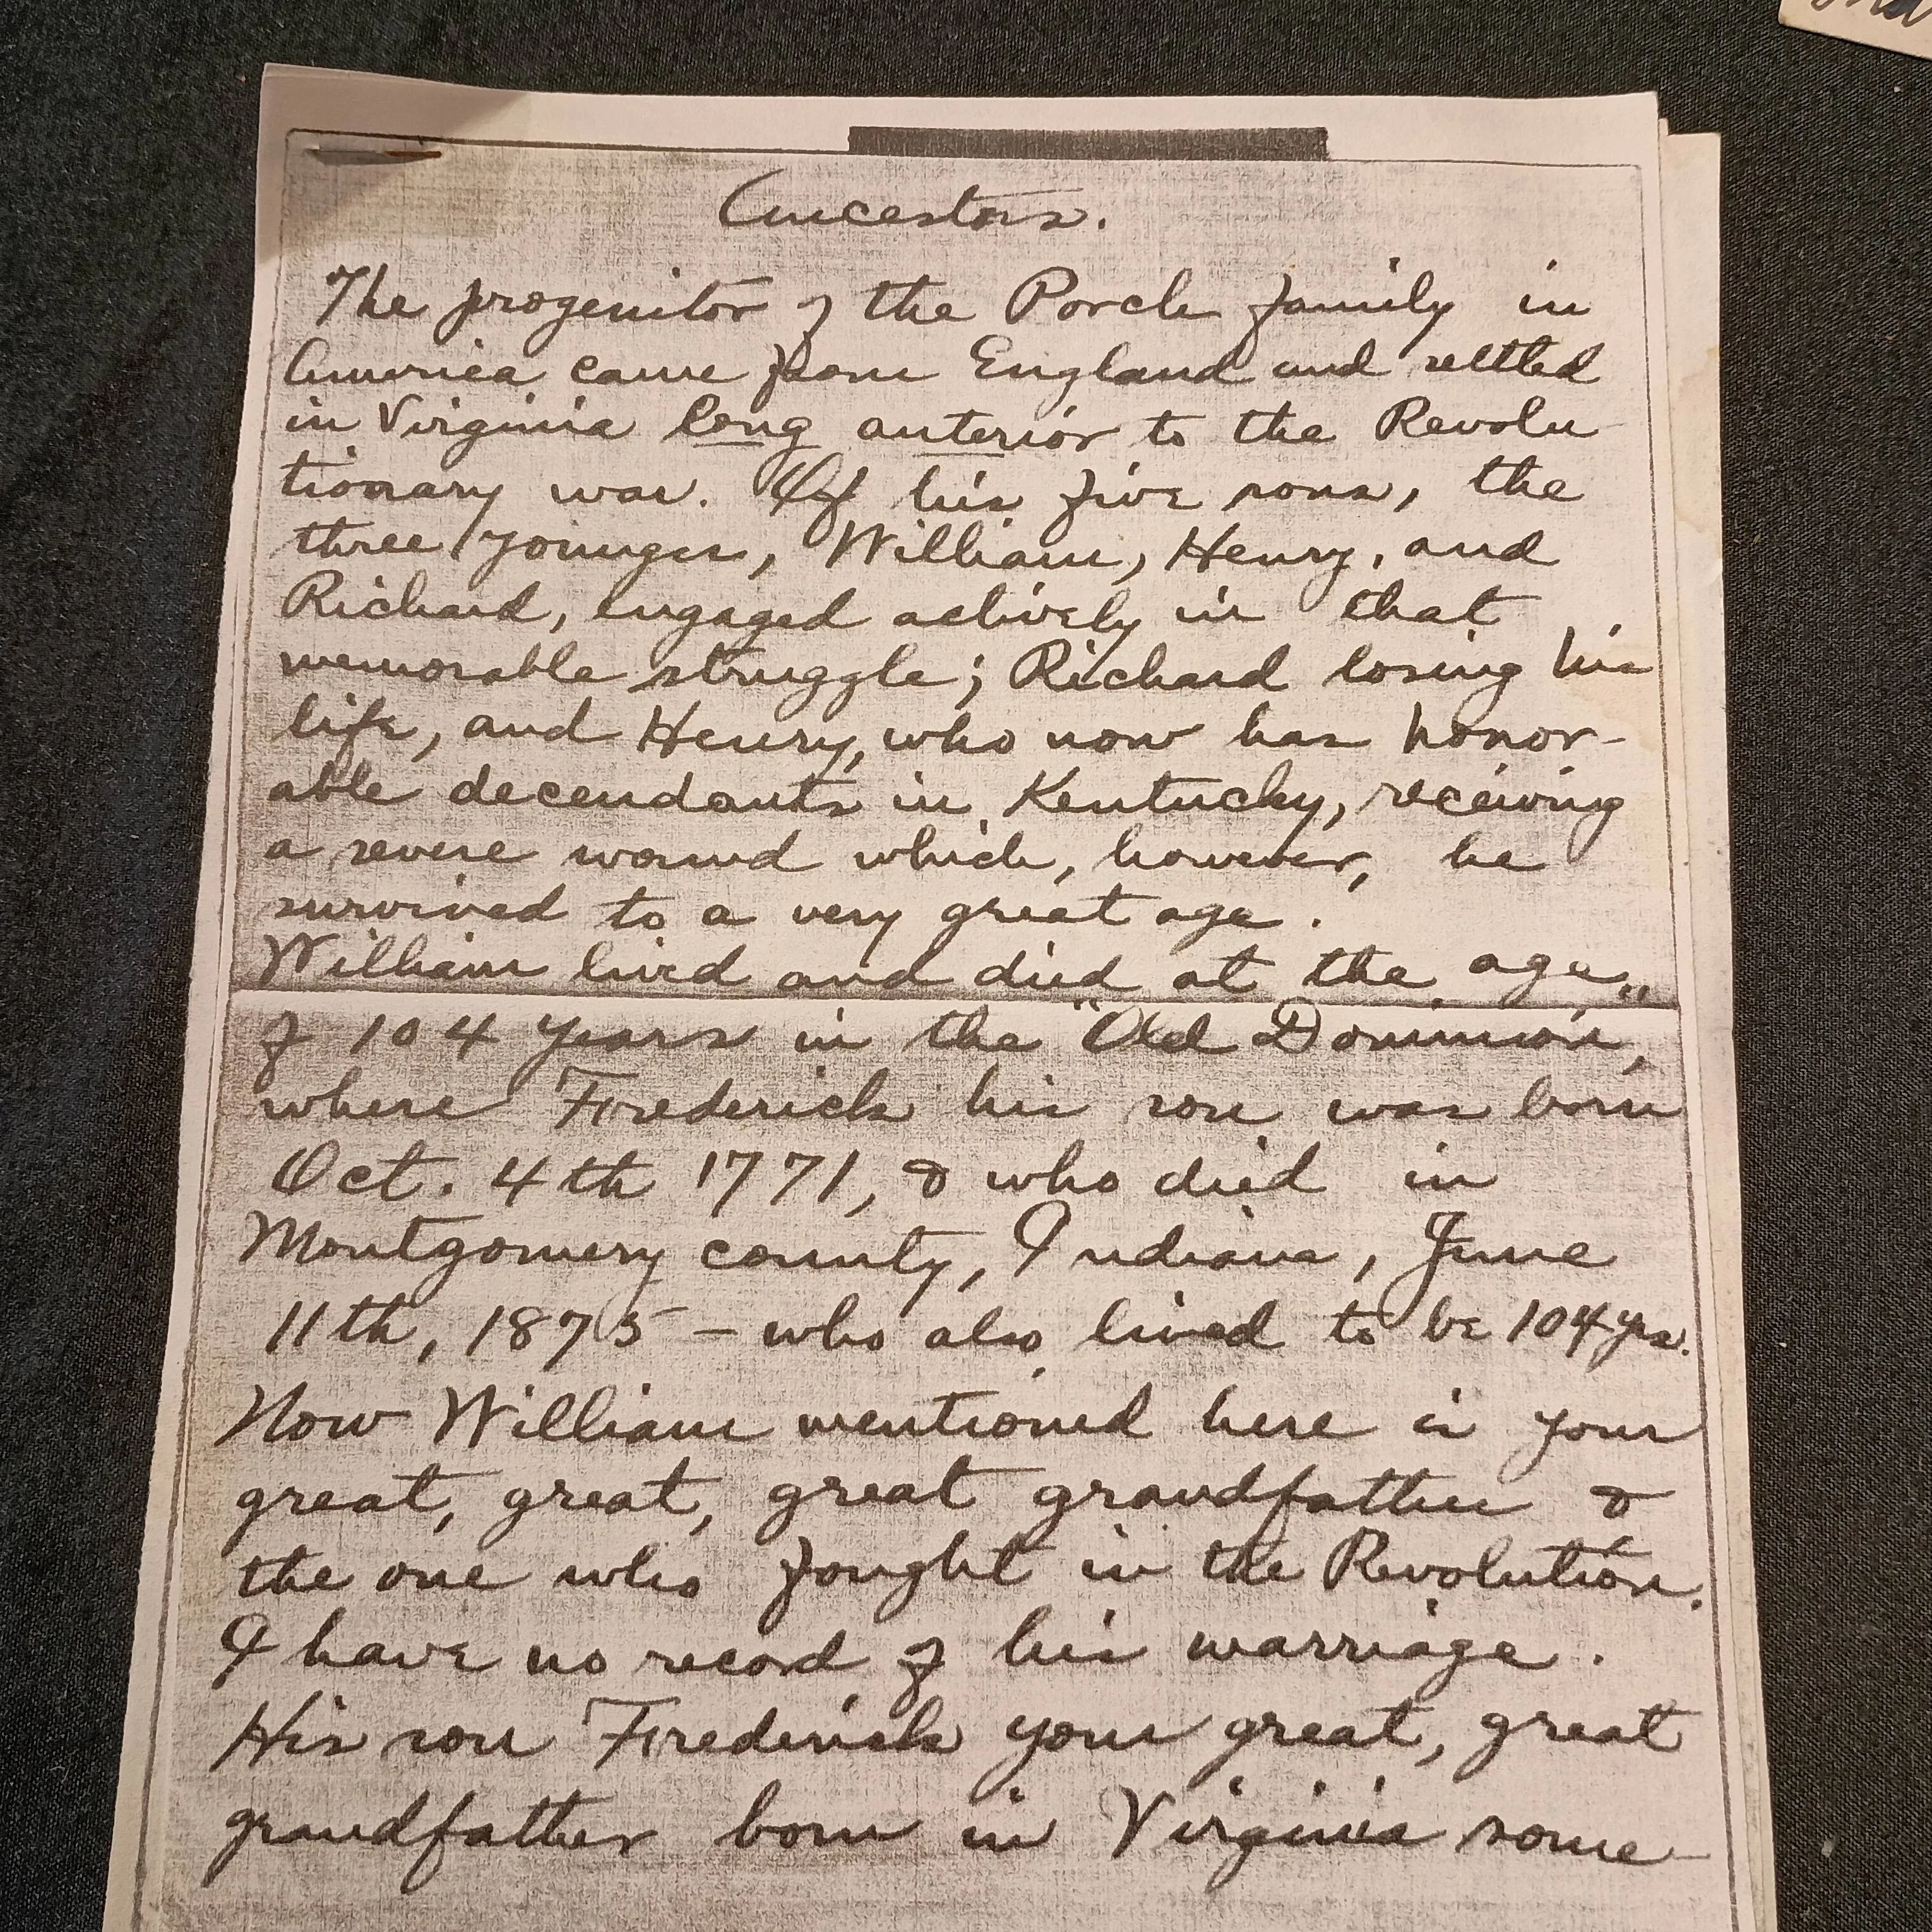 Ancestors.
The progenitor of the Porch family in
America came from England and settled
in Virginia long anterior to the Revolu
tionary war. Of his five sons, the
three younger, William, Henry, and
Richard, engaged actively in that
memorable struggle; Richard losing his
life, and Henry, who now has honor-
able decendants in Kentucky, receiving
a severe wound which, however, he
survived to a very great age.
William lived and died at the age
of 104 years in the "Old Dominion",
where Frederick his son was born
Oct. 4th 1771, & who died in
Montgomery county, Indiana, June
11th, 1875 - who also lived to be 104 yrs.
Now William mentioned here is your
great, great, great grandfather &
the one who fought in the Revolution.
I have no record of his marriage.
His son Frederick your great, great
grandfather born in Virginia some-